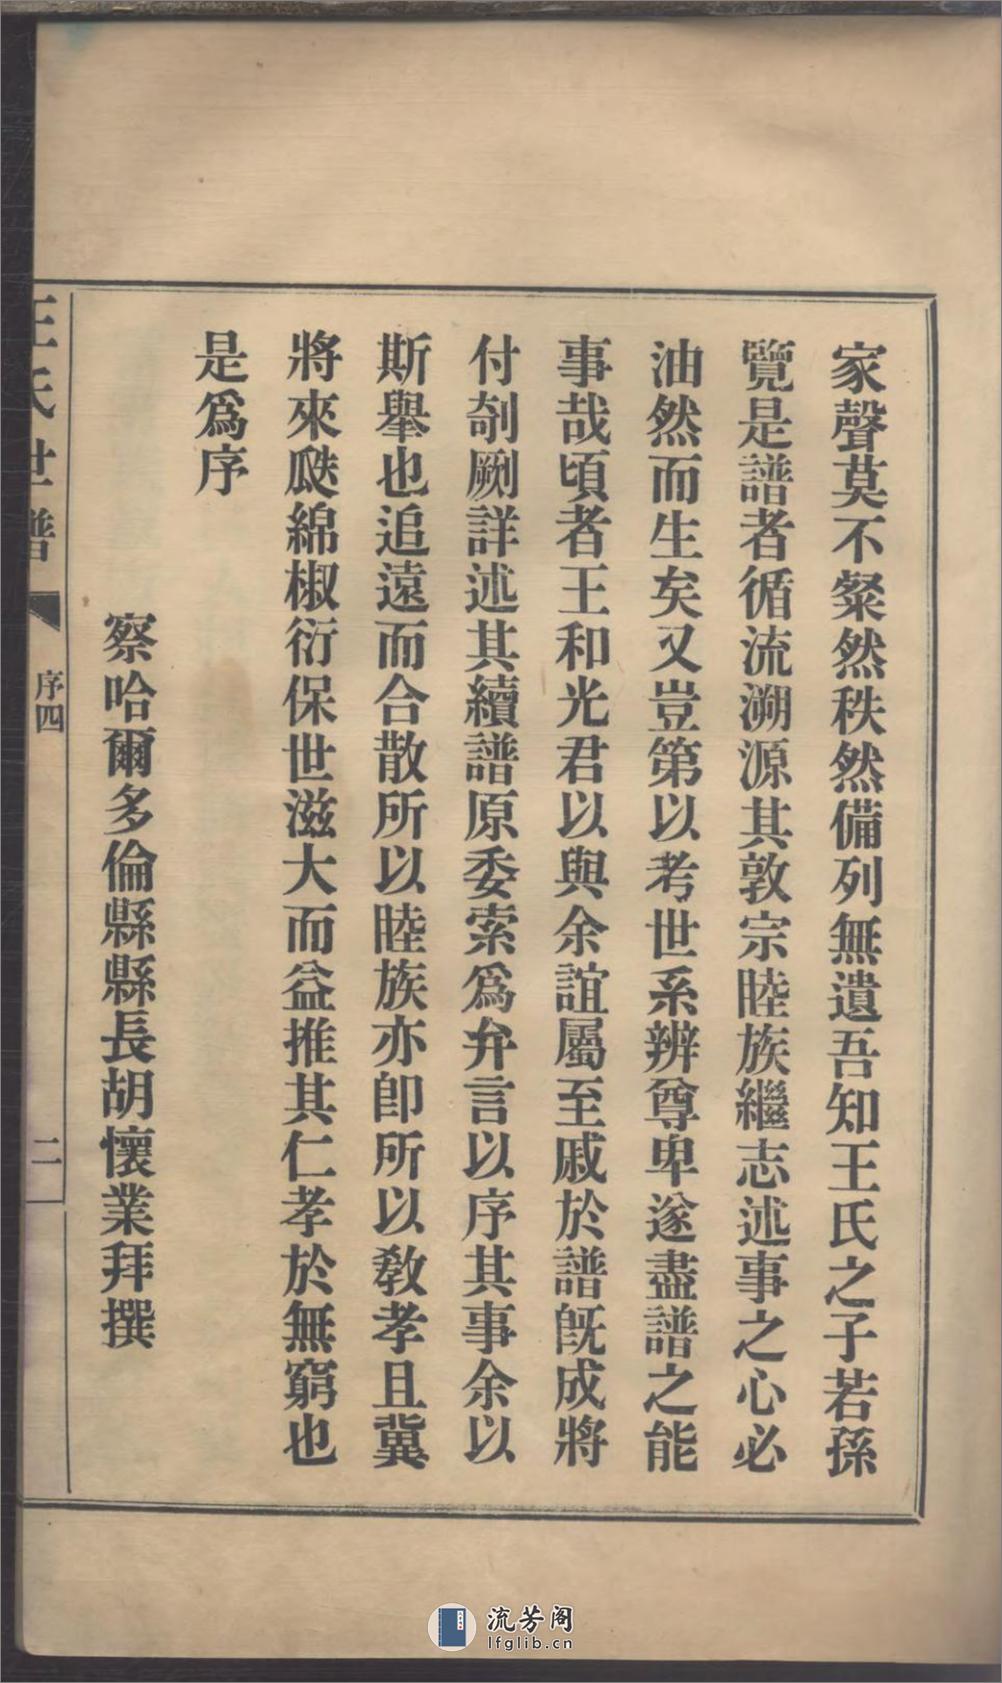 家聲莫不粲然秩然備列無遺吾知王氏之子若孫
覽是譜者循流溯源其敦宗睦族繼志述事之心必
油然而生矣又豈第以考世系辨尊卑遂盡譜之能
事哉頃者王和光君以與余誼屬至戚於譜旣成將
付剞劂詳述其續譜原委索爲弁言以序其事余以
斯舉也追遠而合散所以睦族亦卽所以敎孝且冀
將來瓞綿椒衍保世滋大而益推其仁孝於無窮也
是爲序
察哈爾多倫縣縣長胡懷業拜撰
王氏世譜
序四
二
流芳阁
lfglib.cn